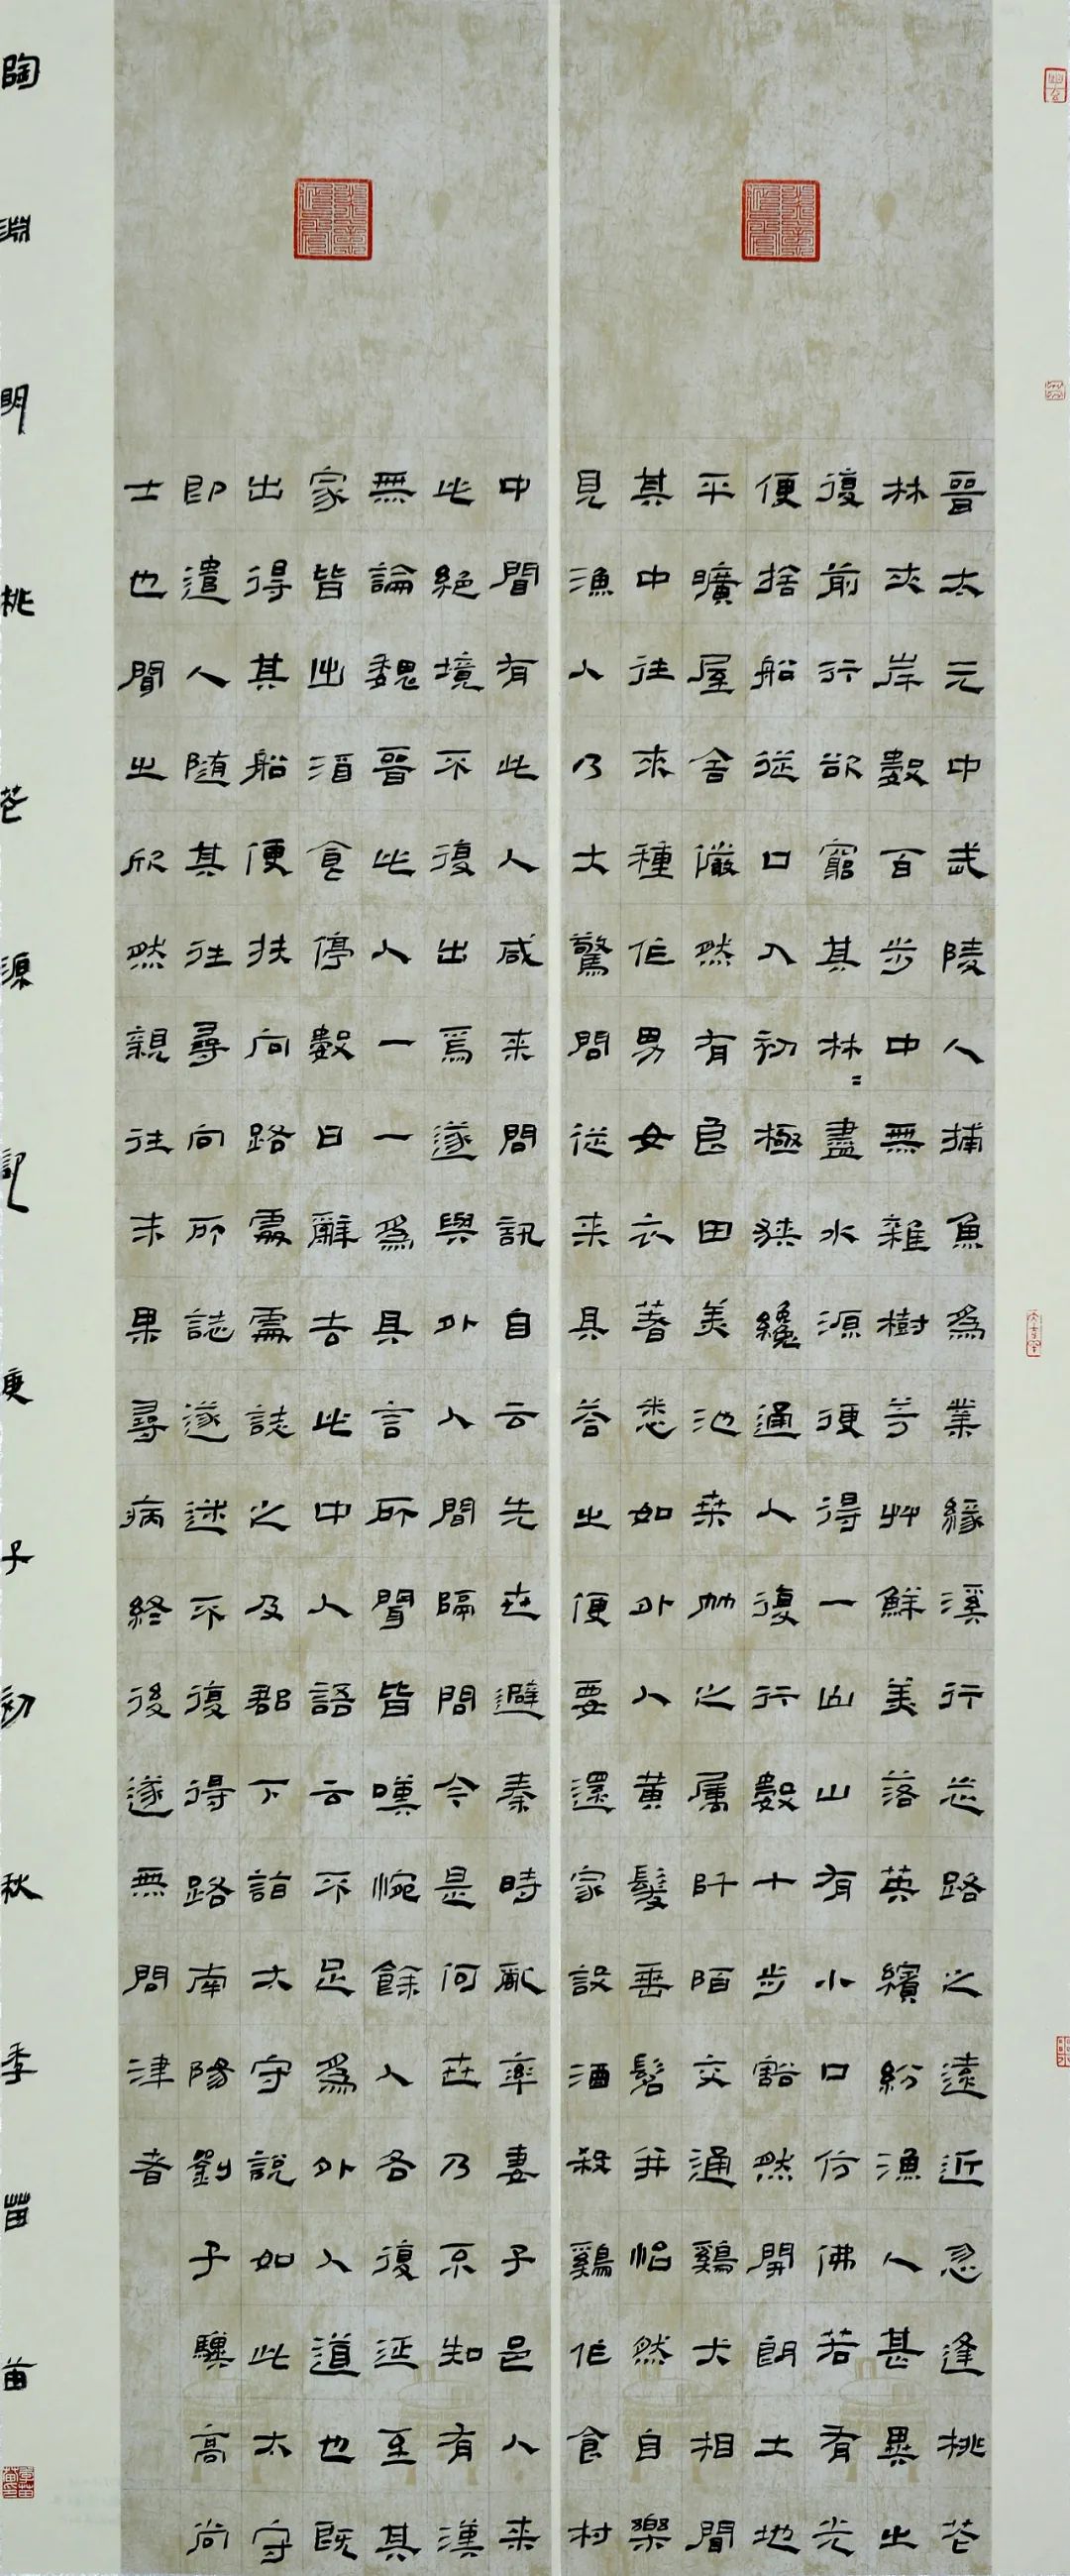 晉太元中武陵人捕魚為業緣溪行忘路之遠近忽逢桃花
林夾岸數百步中無雜樹芳艸鮮美落英繽紛漁人甚異之
復前行欲窮其林〻盡水源便得一山山有小口仿佛若有光
便捨船從口入初極狹纔通人復行數十步豁然開朗土地
平曠屋舍儼然有良田美池桑竹之属阡陌交通鷄犬相聞
其中往來種作男女衣著悉如外人黄髮垂髫并怡然自樂
見漁人乃大驚問從来具荅之便要還家設酒殺鷄作食村
中聞有此人咸来問訊自云先世避秦時亂率妻子邑人来
此絕境不復出焉遂與外人間隔問今是何世乃不知有漢
無論魏晉此人一一為具言所聞皆嘆惋餘人各復延至其
家皆出酒食停數日辭去此中人語云不足為外人道也既
出得其船便扶向路處處誌之及郡下詣太守說如此太守
即遣人随其往尋向所誌遂迷不復得路南陽劉子驥高尚
士也聞之欣然親往未果尋病終後遂無問津者
陶淵明桃花源記庚子初秋季苗苗